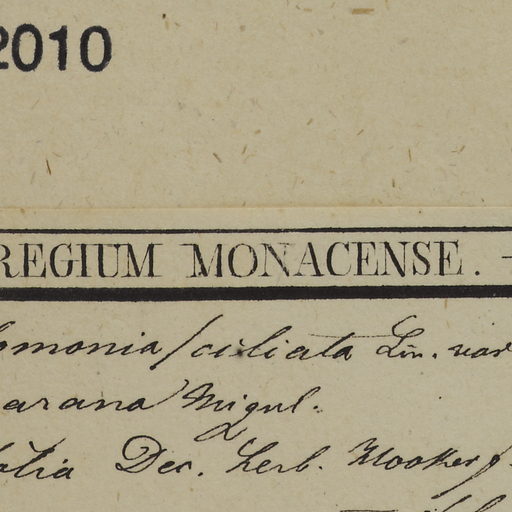 2010
REGIUM MONACENSE. —
omonia ciliata Lin. var
arana Miqul.
olia Dec. herb. Hooker f.